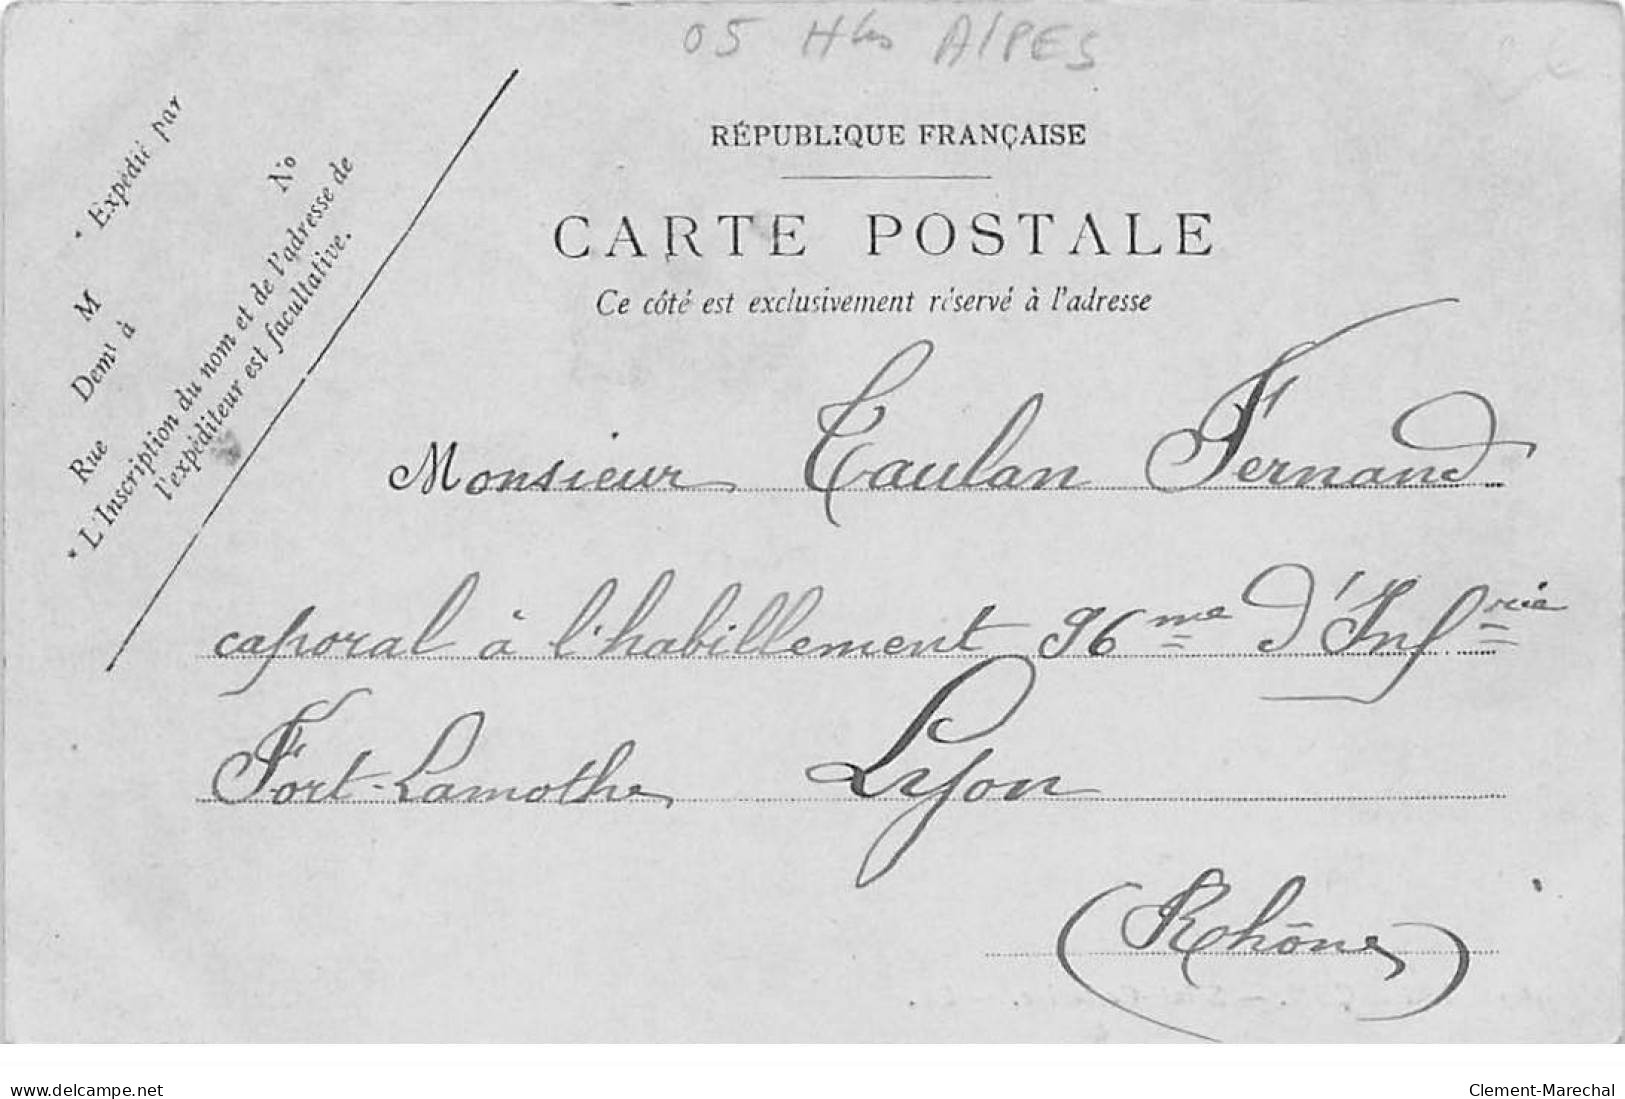 05 Htes AlPES
RÉPUBLIQUE FRANÇAISE
CARTE POSTALE
Ce côté est exclusivement réservé à l'adresse
* Expédié par
M
Demt à
Rue No
* L'Inscription du nom et de l'adresse de
l'expéditeur est facultative.
Monsieur Taulan Fernand
caporal à l'habillement 96me d'Infrie
Fort-Lamothe Lyon
(Rhône)
www.delcampe.net
Clement-Marechal